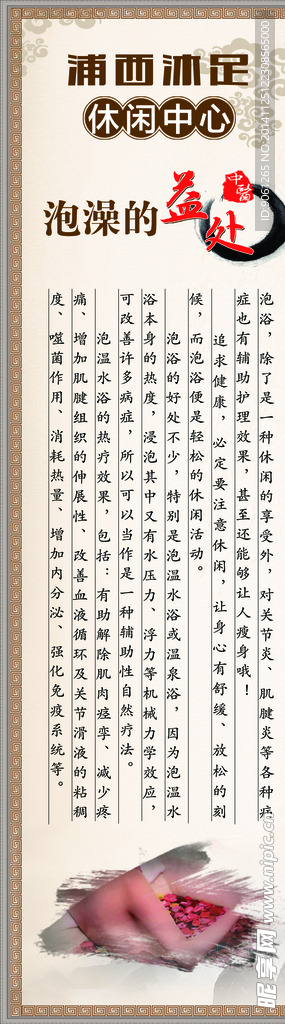 浦西沐足
休闲中心
泡澡的益处
中醫
泡浴，除了是一种休闲的享受外，对关节炎、肌腱炎等各种病
症也有辅助护理效果，甚至还能够让人瘦身哦！
追求健康，必定要注意休闲，让身心有舒缓、放松的时
候，而泡浴便是轻松的休闲活动。
泡浴的好处不少，特别是泡温水浴或温泉浴，因为泡温水
浴本身的热度，浸泡其中又有水压力、浮力等机械力学效应，
可改善许多病症，所以可以当作是一种辅助性自然疗法。
泡温水浴的热疗效果，包括：有助解除肌肉痉挛、减少疼
痛、增加肌腱组织的伸展性、改善血液循环及关节滑液的粘稠
度、噬菌作用、消耗热量、增加内分泌、强化免疫系统等。
昵享网 www.nipic.cn